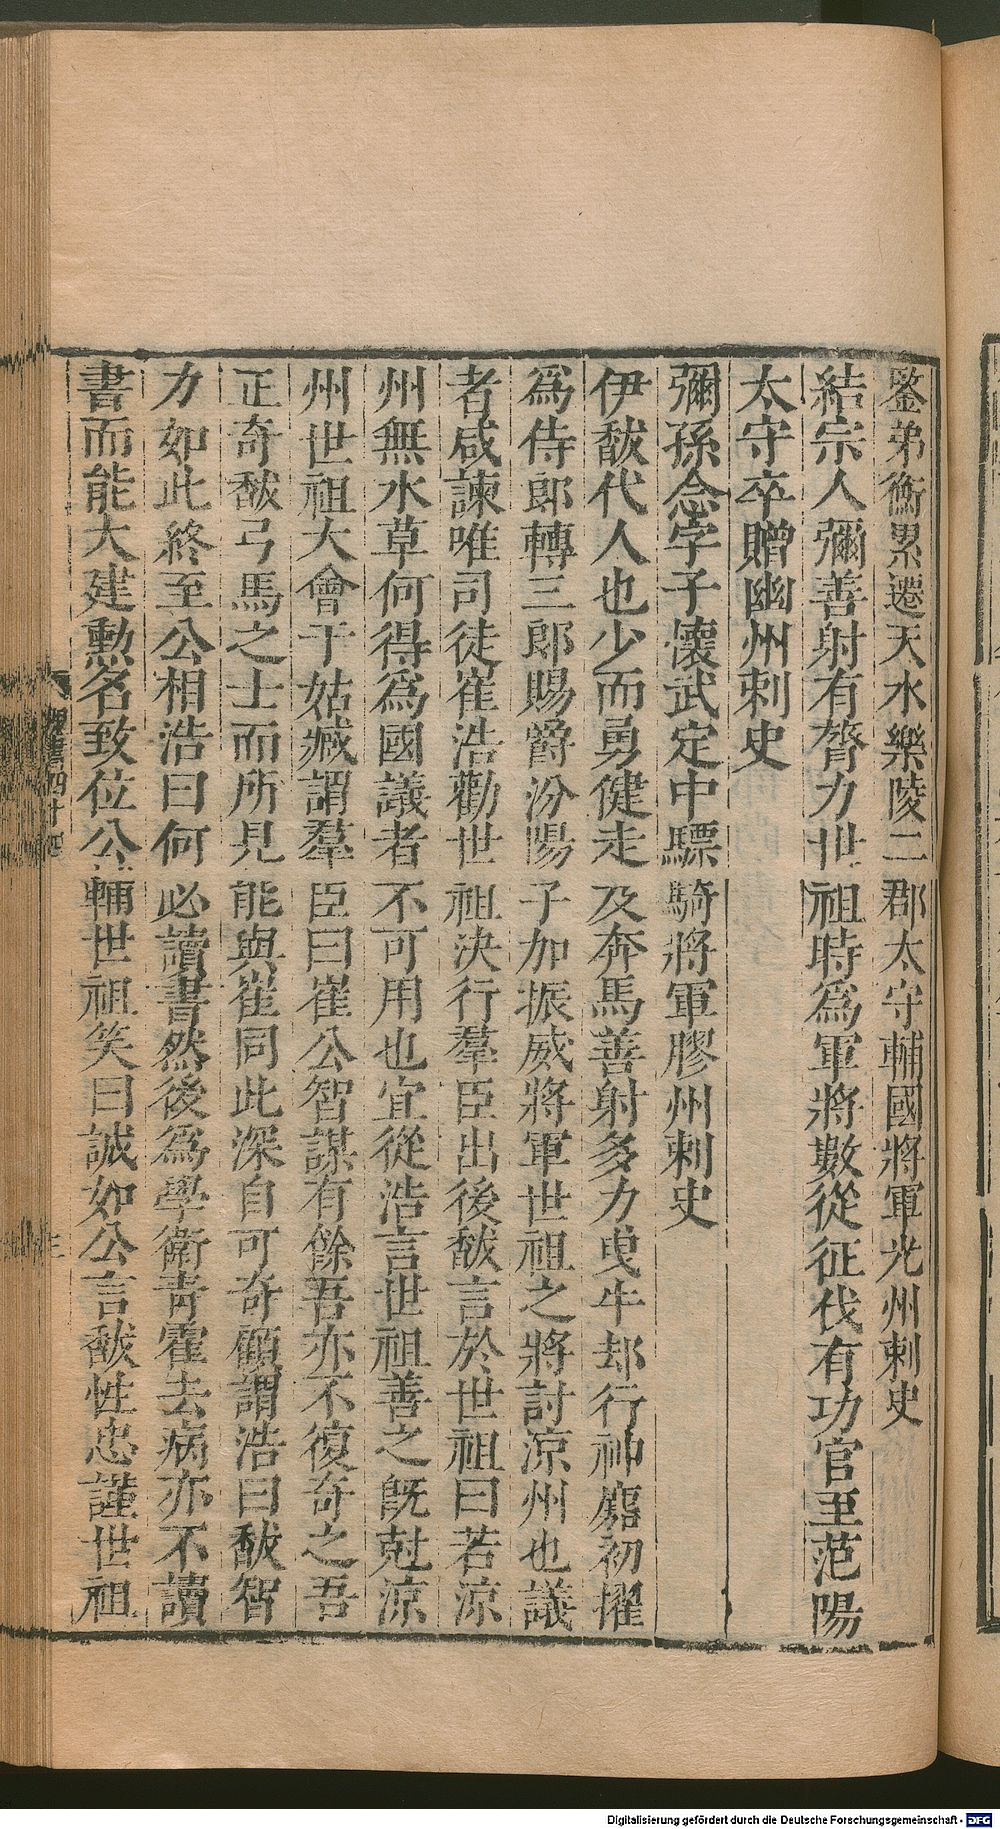 鑒弟衡累遷天水樂陵二郡太守輔國將軍光州刺史
結宗人彌善射有膂力世祖時爲軍將數從征伐有功官至范陽
太守卒贈幽州刺史
彌孫念字子懷武定中驃騎將軍膠州刺史
伊馛代人也少而勇健走及奔馬善射多力曳牛却行神䴥初擢
爲侍郎轉三郎賜爵汾陽子加振威將軍世祖之將討涼州也議
者咸諫唯司徒崔浩勸世祖決行羣臣出後馛言於世祖曰若涼
州無水草何得爲國議者不可用也宜從浩言世祖善之旣尅涼
州世祖大會于姑臧謂羣臣曰崔公智謀有餘吾亦不復奇之吾
正奇馛弓馬之士而所見能與崔同此深自可奇顧謂浩曰馛智
力如此終至公相浩曰何必讀書然後爲學衛青霍去病亦不讀
書而能大建勲名致位公輔世祖笑曰誠如公言馛性忠謹世祖
魏書四十四
三
Digitalisierung gefördert durch die Deutsche Forschungsgemeinschaft - DFG